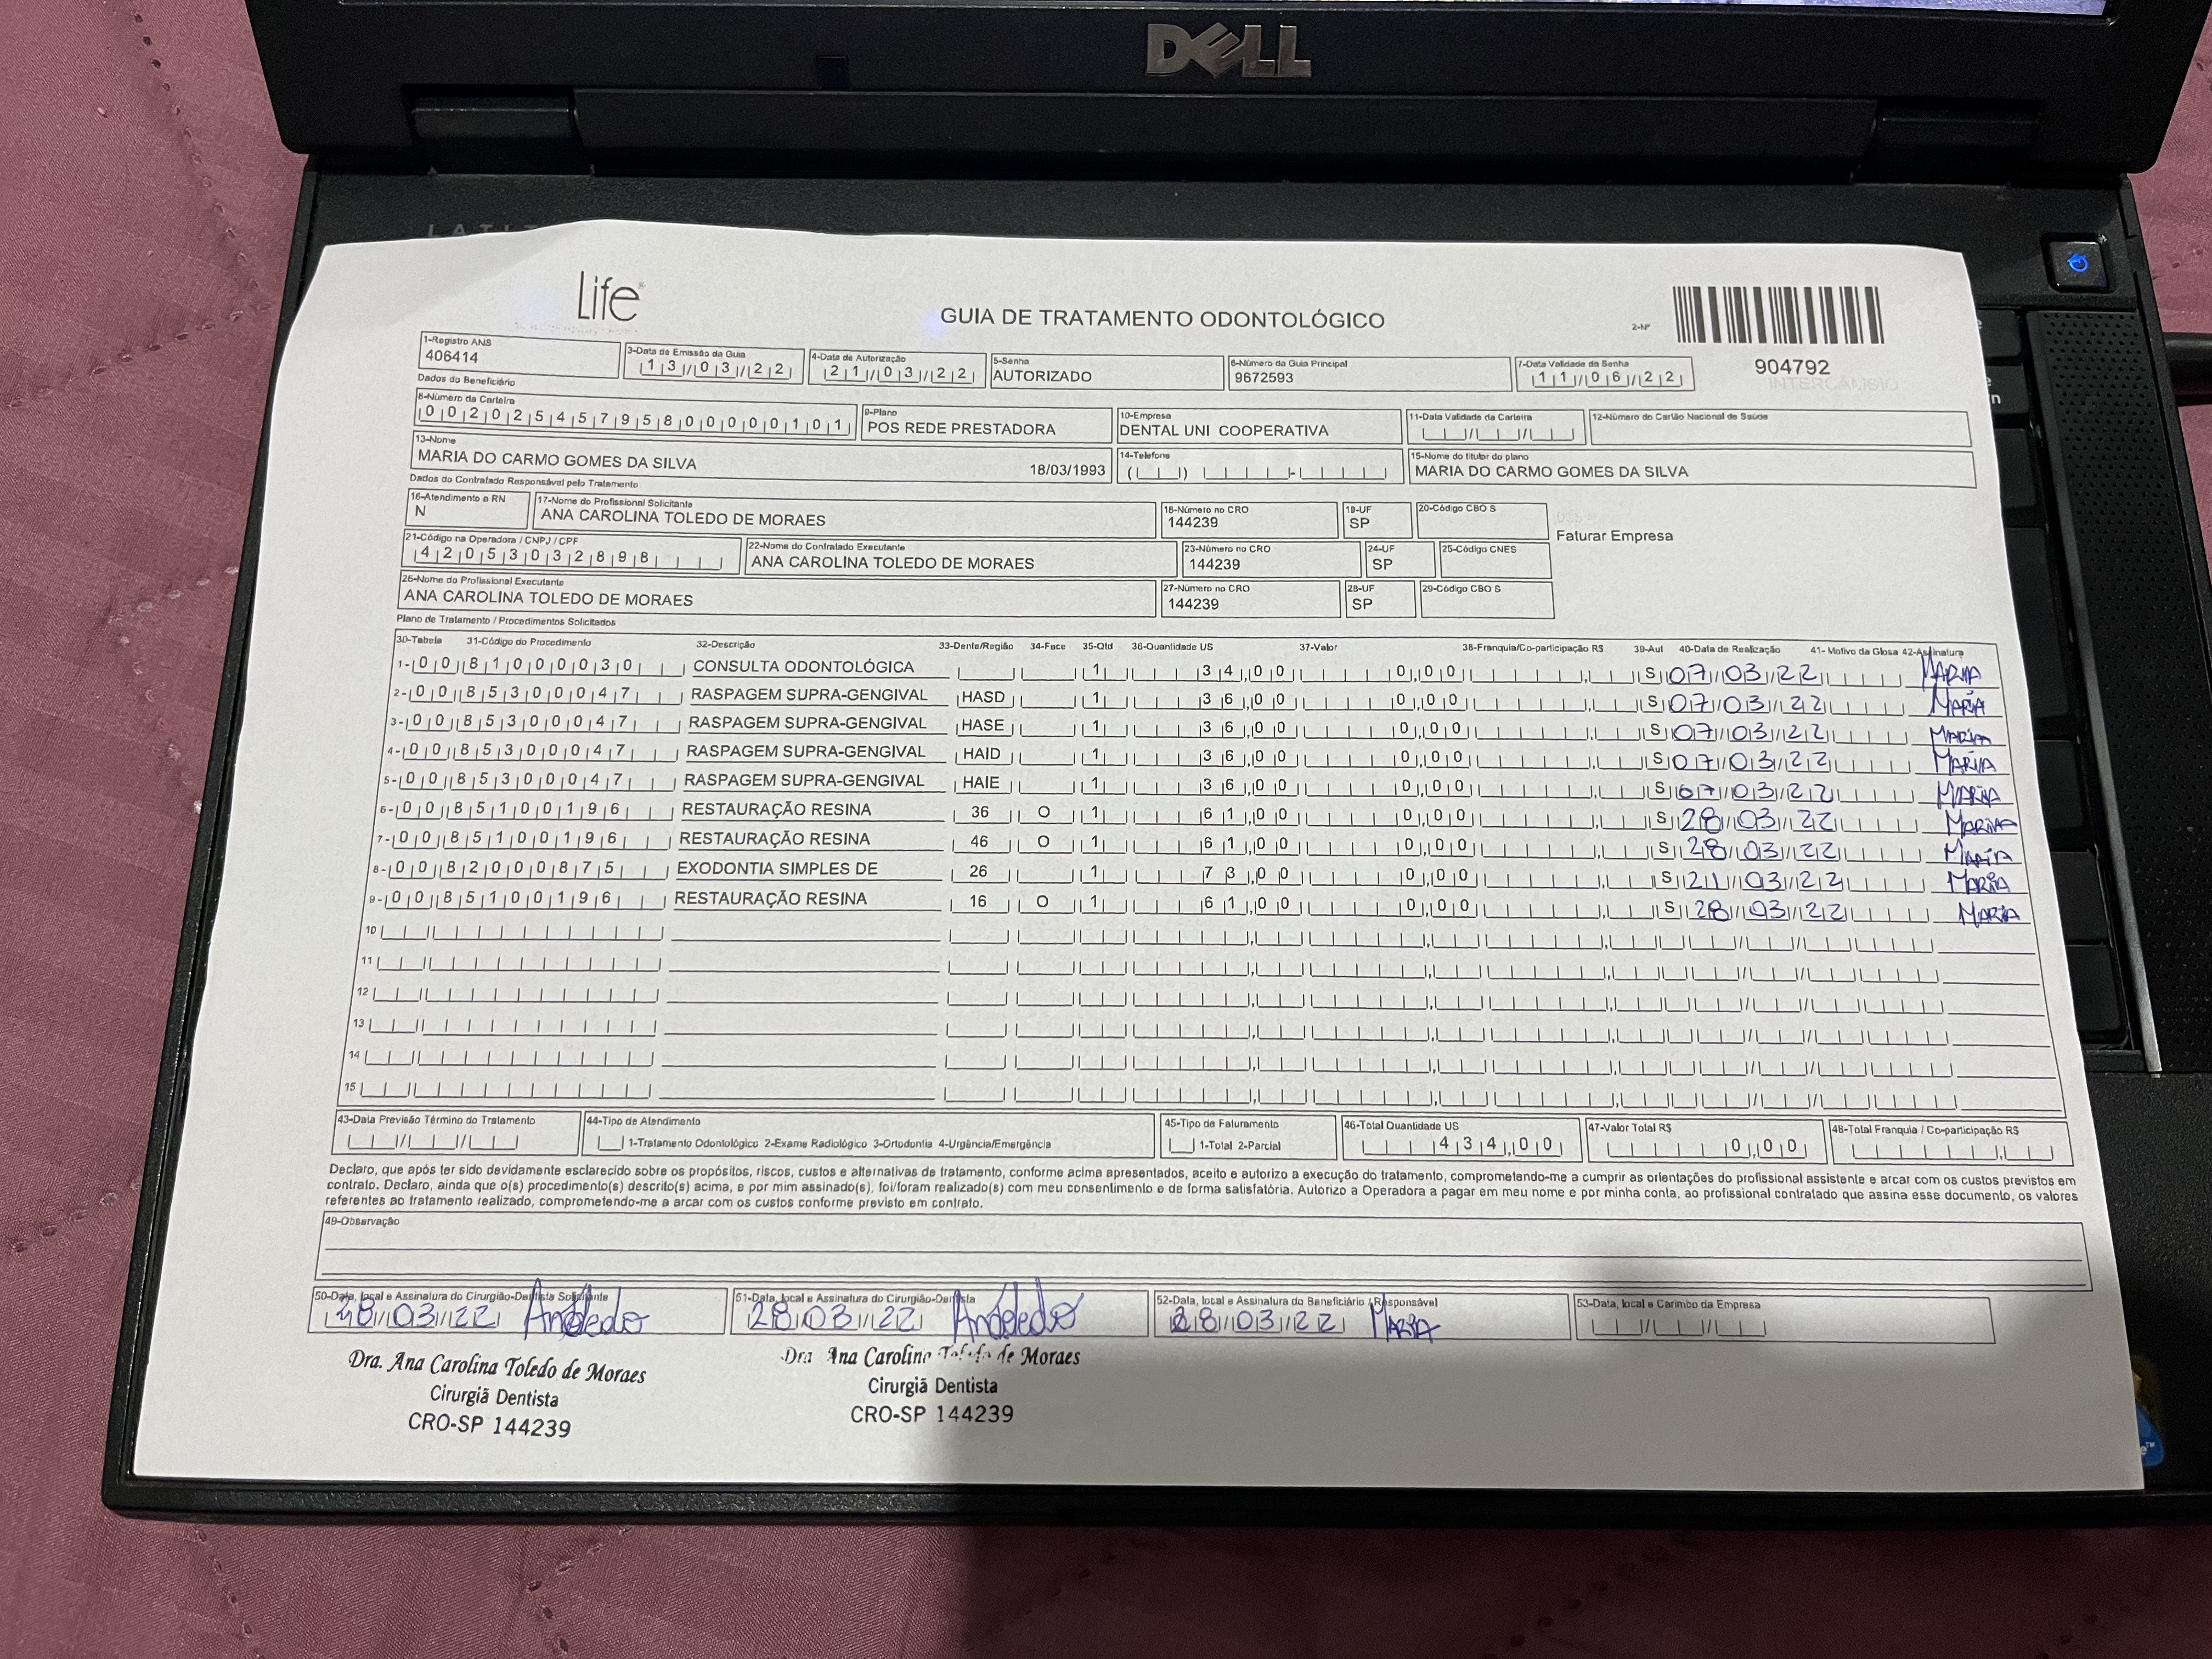 DELL
Life
GUIA DE TRATAMENTO ODONTOLÓGICO
2-Nº
904792
INTERCÂMBIO
1-Registro ANS
406414
3-Data de Emissão da Guia
13/03/22
4-Data de Autorização
21/03/22
5-Senha
AUTORIZADO
6-Número da Guia Principal
9672593
7-Data Validade da Senha
11/06/22
Dados do Beneficiário
8-Número da Carteira
00202545795800000101
9-Plano
POS REDE PRESTADORA
10-Empresa
DENTAL UNI COOPERATIVA
11-Data Validade da Carteira
12-Número do Cartão Nacional de Saúde
13-Nome
MARIA DO CARMO GOMES DA SILVA 18/03/1993
14-Telefone
15-Nome do titular do plano
MARIA DO CARMO GOMES DA SILVA
Dados do Contratado Responsável pelo Tratamento
16-Atendimento a RN
N
17-Nome do Profissional Solicitante
ANA CAROLINA TOLEDO DE MORAES
18-Número no CRO
144239
19-UF
SP
20-Código CBO S
Faturar Empresa
21-Código na Operadora / CNPJ / CPF
42053032898
22-Nome do Contratado Executante
ANA CAROLINA TOLEDO DE MORAES
23-Número no CRO
144239
24-UF
SP
25-Código CNES
26-Nome do Profissional Executante
ANA CAROLINA TOLEDO DE MORAES
27-Número no CRO
144239
28-UF
SP
29-Código CBO S
Plano de Tratamento / Procedimentos Solicitados
30-Tabela 31-Código do Procedimento 32-Descrição 33-Dente/Região 34-Face 35-Qtd 36-Quantidade US 37-Valor 38-Franquia/Co-participação R$ 39-Aut 40-Data de Realização 41- Motivo da Glosa 42-Assinatura
1- 00 81000030 CONSULTA ODONTOLÓGICA 1 34,00 0,00 S 07/03/22 MARIA
2- 00 85300047 RASPAGEM SUPRA-GENGIVAL HASD 1 36,00 0,00 S 07/03/22 MARIA
3- 00 85300047 RASPAGEM SUPRA-GENGIVAL HASE 1 36,00 0,00 S 07/03/22 MARIA
4- 00 85300047 RASPAGEM SUPRA-GENGIVAL HAID 1 36,00 0,00 S 07/03/22 MARIA
5- 00 85300047 RASPAGEM SUPRA-GENGIVAL HAIE 1 36,00 0,00 S 07/03/22 MARIA
6- 00 85100196 RESTAURAÇÃO RESINA 36 O 1 61,00 0,00 S 28/03/22 MARIA
7- 00 85100196 RESTAURAÇÃO RESINA 46 O 1 61,00 0,00 S 28/03/22 MARIA
8- 00 82000875 EXODONTIA SIMPLES DE 26 1 73,00 0,00 S 21/03/22 MARIA
9- 00 85100196 RESTAURAÇÃO RESINA 16 O 1 61,00 0,00 S 28/03/22 MARIA
10
11
12
13
14
15
43-Data Previsão Término do Tratamento
44-Tipo de Atendimento
1-Tratamento Odontológico 2-Exame Radiológico 3-Ortodontia 4-Urgência/Emergência
45-Tipo de Faturamento
1-Total 2-Parcial
46-Total Quantidade US
434,00
47-Valor Total R$
0,00
48-Total Franquia / Co-participação R$
Declaro, que após ter sido devidamente esclarecido sobre os propósitos, riscos, custos e alternativas de tratamento, conforme acima apresentados, aceito e autorizo a execução do tratamento, comprometendo-me a cumprir as orientações do profissional assistente e arcar com os custos previstos em
contrato. Declaro, ainda que o(s) procedimento(s) descrito(s) acima, e por mim assinado(s), foi/foram realizado(s) com meu consentimento e de forma satisfatória. Autorizo a Operadora a pagar em meu nome e por minha conta, ao profissional contratado que assina esse documento, os valores
referentes ao tratamento realizado, comprometendo-me a arcar com os custos conforme previsto em contrato.
49-Observação
50-Data, local e Assinatura do Cirurgião-Dentista Solicitante
28/03/22
51-Data, local e Assinatura do Cirurgião-Dentista
28/03/22
52-Data, local e Assinatura do Beneficiário / Responsável
28/03/22 MARIA
53-Data, local e Carimbo da Empresa
Dra. Ana Carolina Toledo de Moraes
Cirurgiã Dentista
CRO-SP 144239
Dra Ana Carolina Toledo de Moraes
Cirurgiã Dentista
CRO-SP 144239